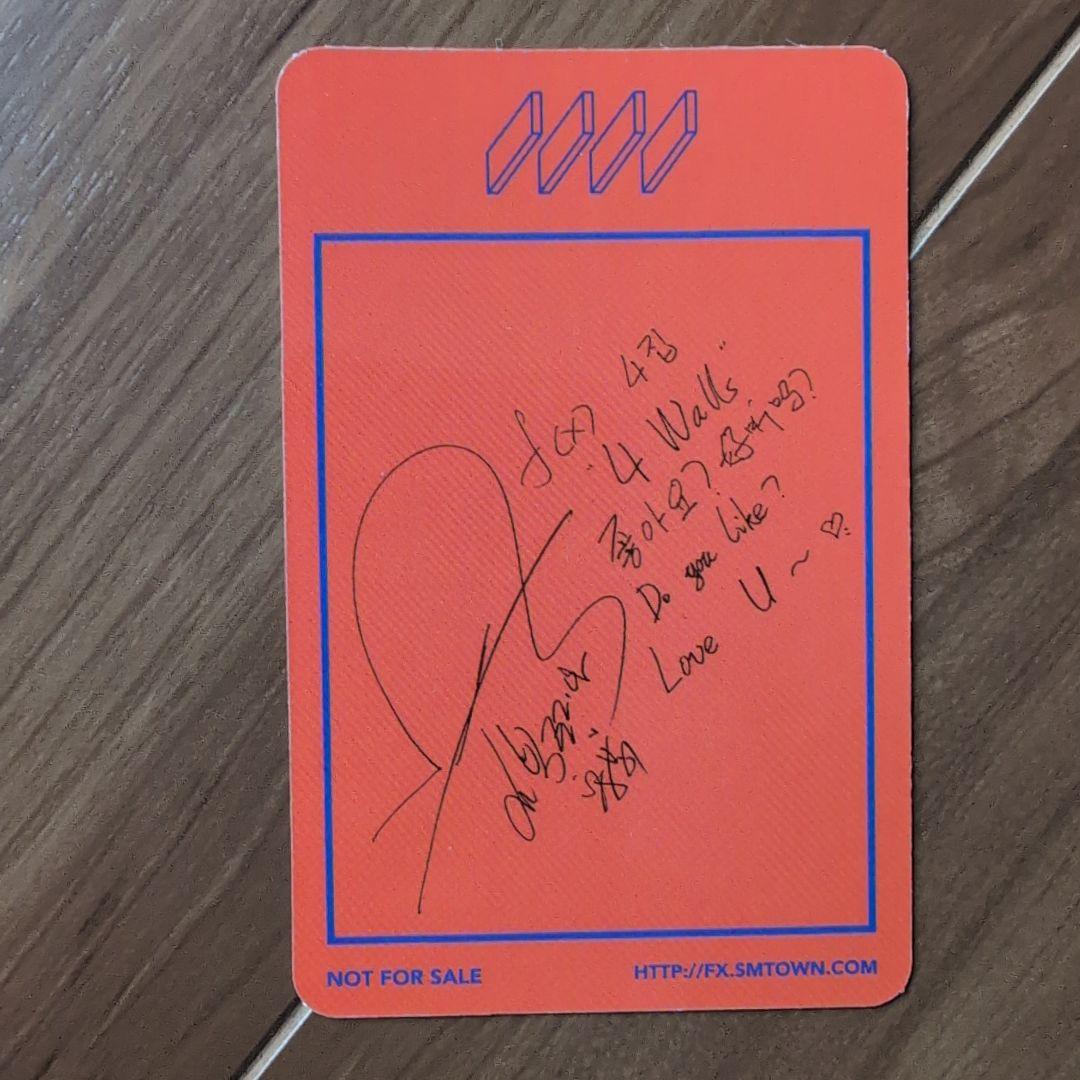 f(x) 4집
"4 Walls"
좋아요? 好听吗?
Do you like?
Love U ~ ♡
NOT FOR SALE
HTTP://FX.SMTOWN.COM